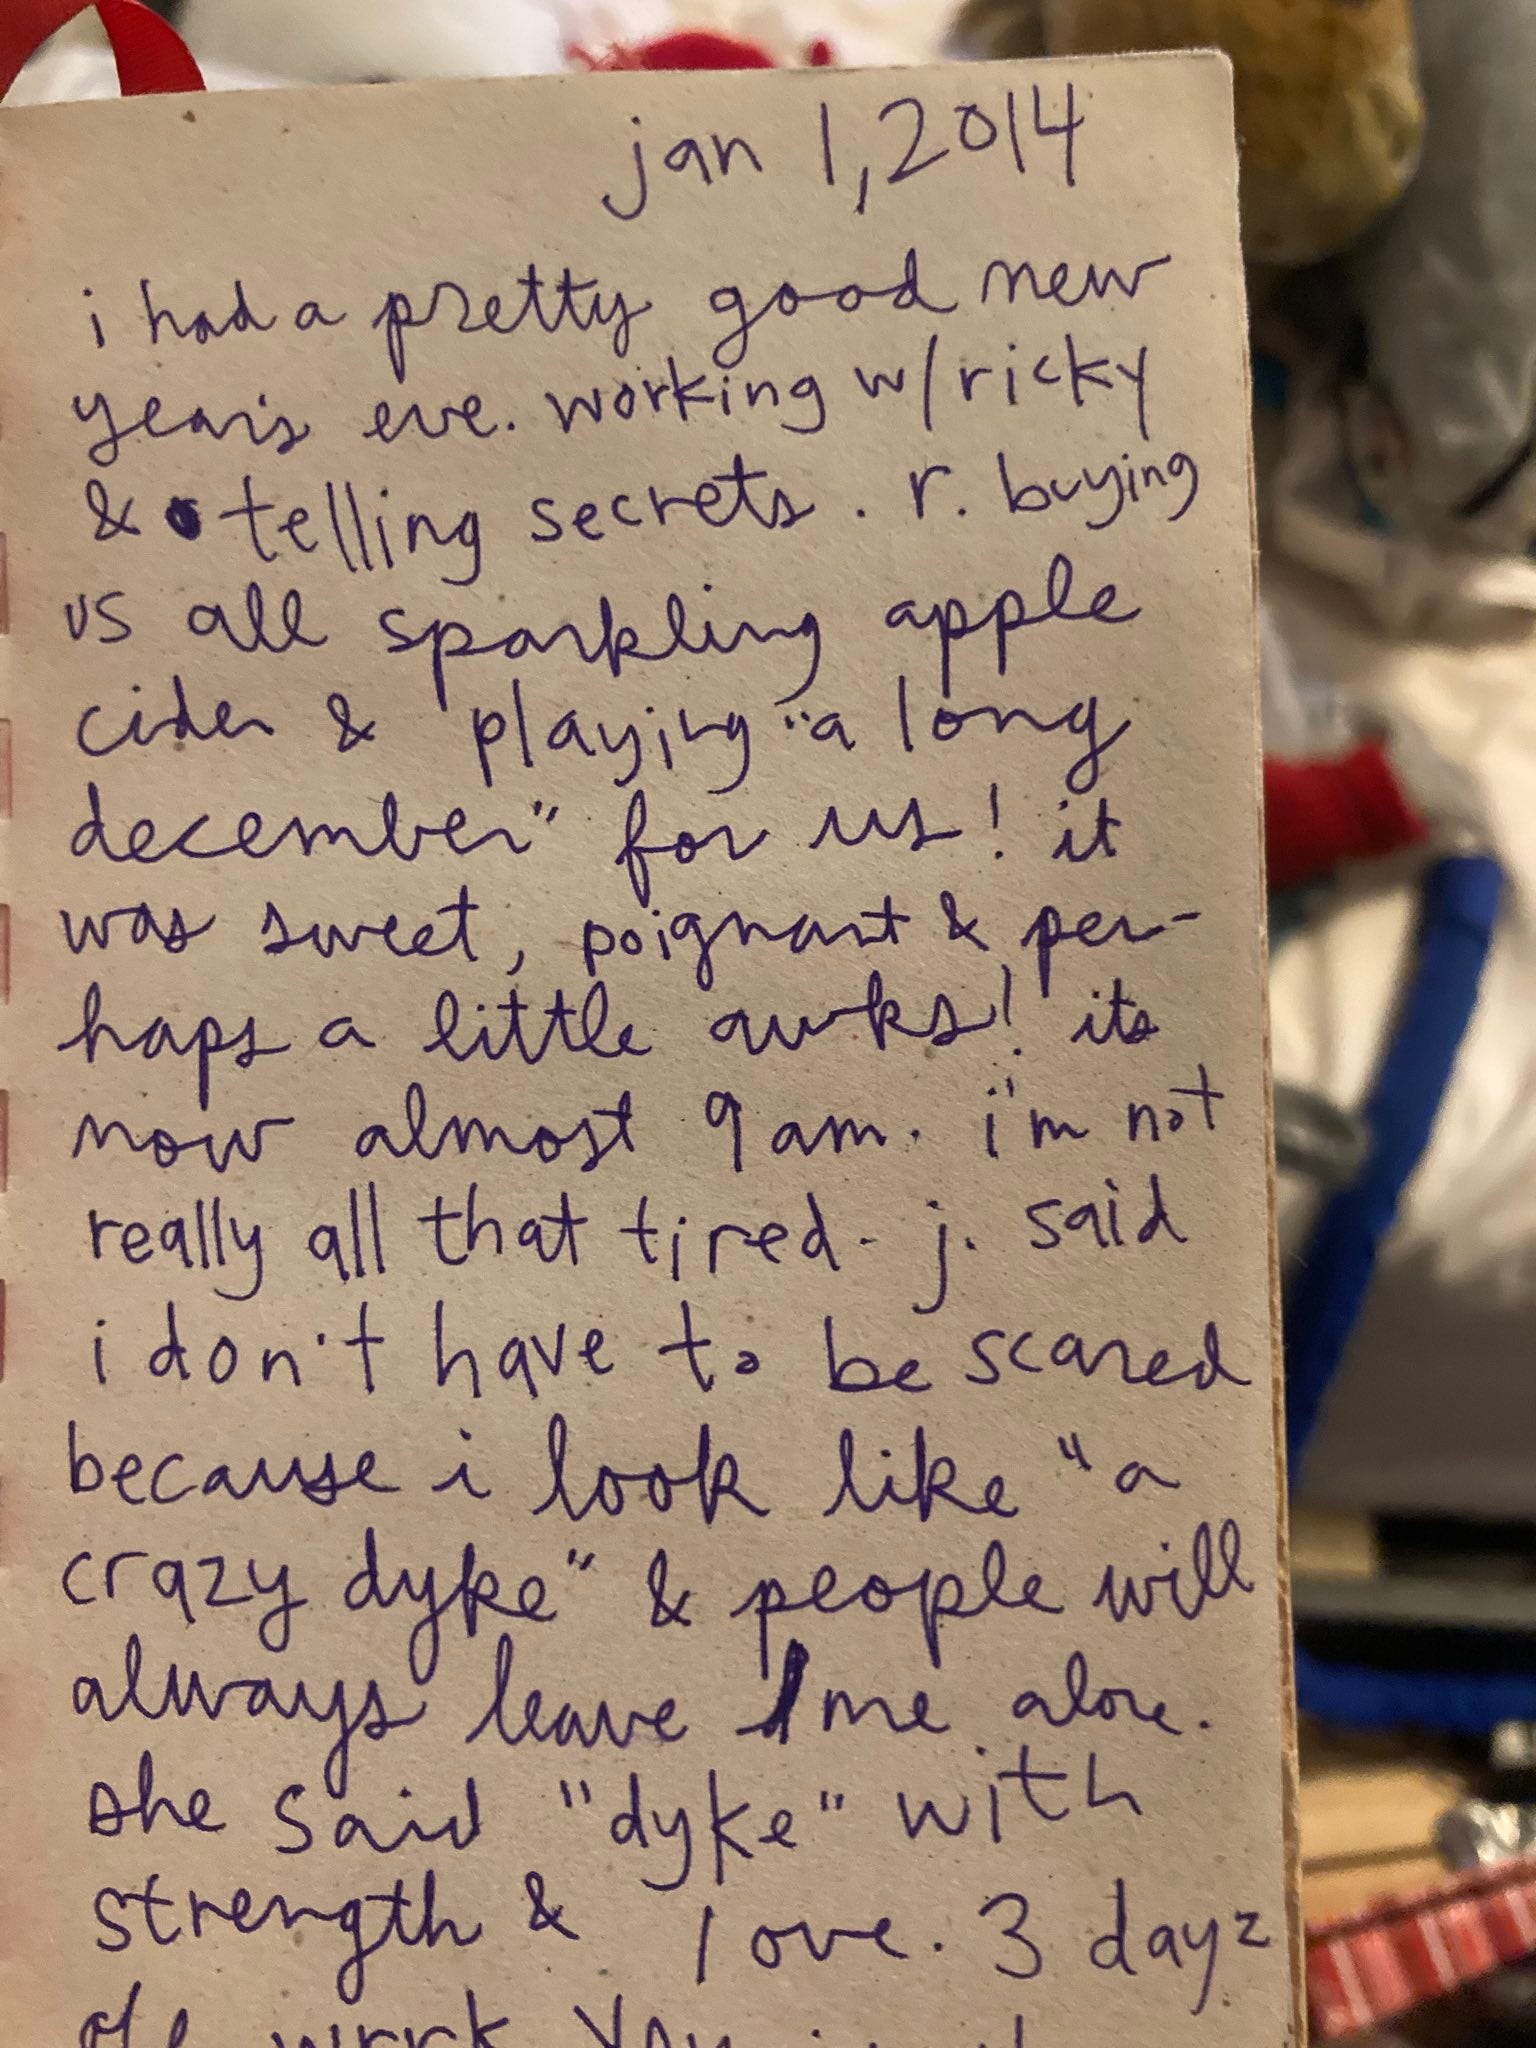 jan 1, 2014
i had a pretty good new
year's eve. working w/ ricky
& telling secrets. r. buying
us all sparkling apple
cider & playing "a long
december" for us! it
was sweet, poignant & per-
haps a little awks! its
now almost 9 am. i'm not
really all that tired. j. said
i don't have to be scared
because i look like "a
crazy dyke" & people will
always leave me alone.
she said "dyke" with
strength & love. 3 dayz
work